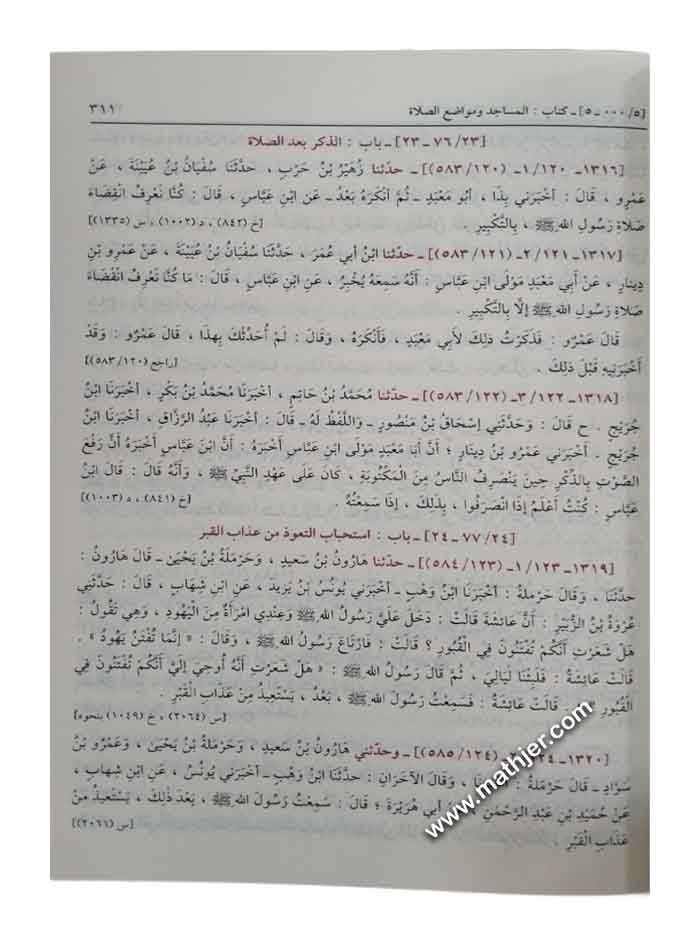 [٥/٠٠٠ـ٥] ـ كتاب : المساجد ومواضع الصلاة ٣١١
[٢٣/٧٦ ـ ٢٣] ـ باب : الذكر بعد الصلاة
١٣١٦ـ ١/١٢٠ـ (٥٨٣/١٢٠)] ـ حدّثنا زُهَيْرُ بْنُ حَرْبٍ ، حَدَّثَنَا سُفْيَانُ بْنُ عُيَيْنَةَ ، عَنْ
عَمْرٍو ، قَالَ : أَخْبَرَنِي بِذَا ، أَبُو مَعْبَدٍ ـ ثُمَّ أَنْكَرَهُ بَعْدُ ـ عَنِ ابْنِ عَبَّاسٍ ، قَالَ : كُنَّا نَعْرِفُ انْقِضَاءَ
صَلَاةِ رَسُولِ اللهِ ﷺ ، بِالتَّكْبِيرِ .
[خ (٨٤٢) ، د (١٠٠٢) ، س (١٣٣٥)]
١٣١٧ـ ٢/١٢١ـ (٥٨٣/١٢١)] ـ حدّثنا ابْنُ أَبِي عُمَرَ ، حَدَّثَنَا سُفْيَانُ بْنُ عُيَيْنَةَ ، عَنْ عَمْرِو بْنِ
دِينَارٍ ، عَنْ أَبِي مَعْبَدٍ مَوْلَى ابْنِ عَبَّاسٍ : أَنَّهُ سَمِعَهُ يُخْبِرُ ، عَنِ ابْنِ عَبَّاسٍ ، قَالَ : مَا كُنَّا نَعْرِفُ انْقِضَاءَ
صَلَاةِ رَسُولِ اللهِ ﷺ إِلَّا بِالتَّكْبِيرِ .
قَالَ عَمْرٌو : فَذَكَرْتُ ذَلِكَ لأَبِي مَعْبَدٍ ، فَأَنْكَرَهُ ، وَقَالَ : لَمْ أُحَدِّثْكَ بِهذَا ، قَالَ عَمْرٌو : وَقَدْ
أَخْبَرَنِيهِ قَبْلَ ذَلِكَ . [راجع (٥٨٣/١٢٠)]
١٣١٨ـ ٣/١٢٢ـ (٥٨٣/١٢٢)] ـ حدّثنا مُحَمَّدُ بْنُ حَاتِمٍ ، أَخْبَرَنَا مُحَمَّدُ بْنُ بَكْرٍ ، أَخْبَرَنَا ابْنُ
جُرَيْجٍ . ح قَالَ : وَحَدَّثَنِي إِسْحَاقُ بْنُ مَنْصُورٍ ـ وَاللَّفْظُ لَهُ ـ قَالَ : أَخْبَرَنَا عَبْدُ الرَّزَّاقِ ، أَخْبَرَنَا ابْنُ
جُرَيْجٍ . أَخْبَرَنِي عَمْرُو بْنُ دِينَارٍ ؛ أَنَّ أَبَا مَعْبَدٍ مَوْلَى ابْنِ عَبَّاسٍ أَخْبَرَهُ : أَنَّ ابْنَ عَبَّاسٍ أَخْبَرَهُ أَنَّ رَفْعَ
الصَّوْتِ بِالذِّكْرِ حِينَ يَنْصَرِفُ النَّاسُ مِنَ الْمَكْتُوبَةِ ، كَانَ عَلَى عَهْدِ النَّبِيِّ ﷺ ، وَأَنَّهُ قَالَ : قَالَ ابْنُ
عَبَّاسٍ : كُنْتُ أَعْلَمُ إِذَا انْصَرَفُوا ، بِذَلِكَ ، إِذَا سَمِعْتُهُ [خ (٨٤١) ، د (١٠٠٣)]
[٢٤/٧٧ ـ ٢٤] ـ باب : استحباب التعوذ من عذاب القبر
١٣١٩ـ ١/١٢٣ـ (٥٨٤/١٢٣)] ـ حدّثنا هَارُونُ بْنُ سَعِيدٍ ، وَحَرْمَلَةُ بْنُ يَحْيَىٰ ـ قَالَ هَارُونُ :
حَدَّثَنَا ، وَقَالَ حَرْمَلَةُ : أَخْبَرَنَا ابْنُ وَهْبٍ ـ أَخْبَرَنِي يُونُسُ بْنُ يَزِيدَ ، عَنِ ابْنِ شِهَابٍ ، قَالَ : حَدَّثَنِي
عُرْوَةُ بْنُ الزُّبَيْرِ : أَنَّ عَائِشَةَ قَالَتْ : دَخَلَ عَلَيَّ رَسُولُ اللهِ ﷺ وَعِنْدِي امْرَأَةٌ مِنَ الْيَهُودِ ، وَهِيَ تَقُولُ :
هَلْ شَعَرْتِ أَنَّكُمْ تُفْتَنُونَ فِي الْقُبُورِ ؟ قَالَتْ : فَارْتَاعَ رَسُولُ اللهِ ﷺ ، وَقَالَ : « إِنَّمَا تُفْتَنُ يَهُودُ » .
قَالَتْ عَائِشَةُ : فَلَبِثْنَا لَيَالِيَ ، ثُمَّ قَالَ رَسُولُ اللهِ ﷺ : « هَلْ شَعَرْتِ أَنَّهُ أُوحِيَ إِلَيَّ أَنَّكُمْ تُفْتَنُونَ فِي
الْقُبُورِ قَالَتْ عَائِشَةُ : فَسَمِعْتُ رَسُولَ اللهِ ﷺ ، بَعْدُ ، يَسْتَعِيذُ مِنْ عَذَابِ الْقَبْرِ .
[س (٢٠٦٤) ، خ (١٠٤٩) بنحوه]
١٣٢٠ـ (٥٨٥/١٢٤)] ـ وحدّثني هَارُونُ بْنُ سَعِيدٍ ، وَحَرْمَلَةُ بْنُ يَحْيَىٰ ، وَعَمْرُو بْنُ
سَوَّادٍ ـ قَالَ حَرْمَلَةُ : ، وَقَالَ الآخَرَانِ : حَدَّثَنَا ابْنُ وَهْبٍ ـ أَخْبَرَنِي يُونُسُ ، عَنِ ابْنِ شِهَابٍ ،
عَنْ حُمَيْدِ بْنِ عَبْدِ الرَّحْمَٰنِ أَبِي هُرَيْرَةَ ؛ قَالَ : سَمِعْتُ رَسُولَ اللهِ ﷺ ، بَعْدَ ذَلِكَ ، يَسْتَعِيذُ مِنْ
عَذَابِ الْقَبْرِ [س (٢٠٦١)]
www.mathjer.com